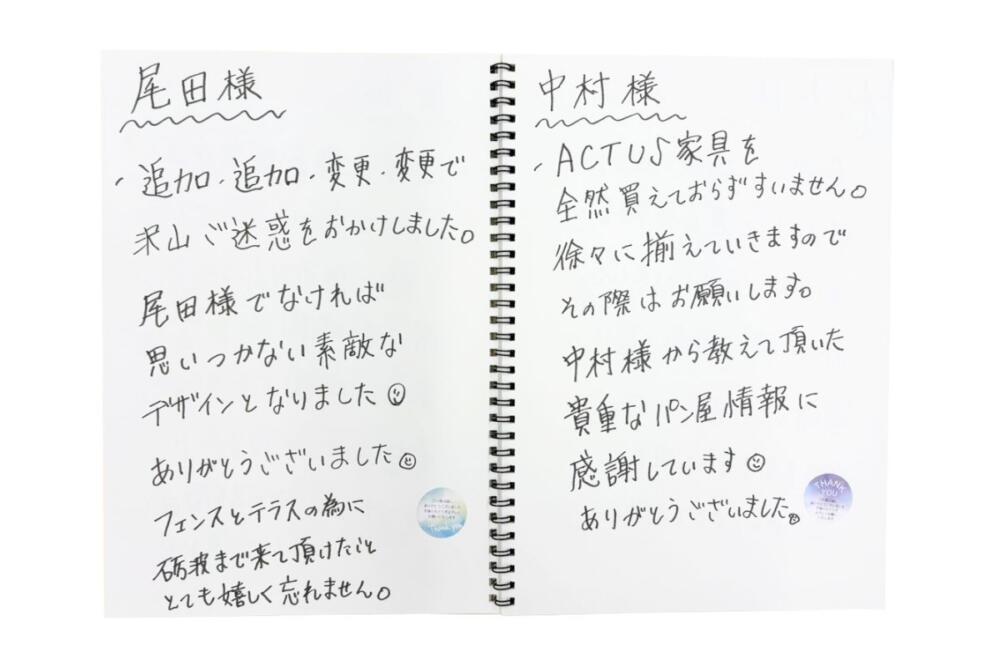 尾田様
追加・追加・変更・変更で
沢山ご迷惑をおかけしました。
尾田様でなければ
思いつかない素敵な
デザインとなりました
ありがとうございました
フェンスとテラスの為に
砺波まで来て頂けたこと
とても嬉しく忘れません。
中村様
ACTUS家具を
全然買えておらずすいません。
徐々に揃えていきますので
その際はお願いします。
中村様から教えて頂いた
貴重なパン屋情報に
感謝しています
ありがとうございました。
THANK
YOU